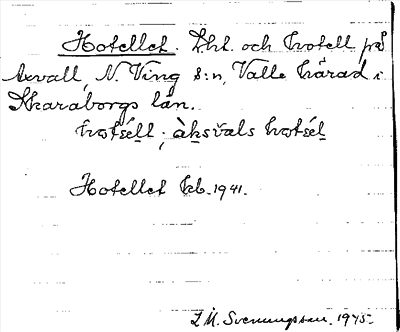 Hotellet. Lht. och hotell på
Axvall, N. Ving s:n, Valle härad i
Skaraborgs län.
hotéll ; àksvals hotél
Hotellet kb. 1941.
Svenungsson. 1945.